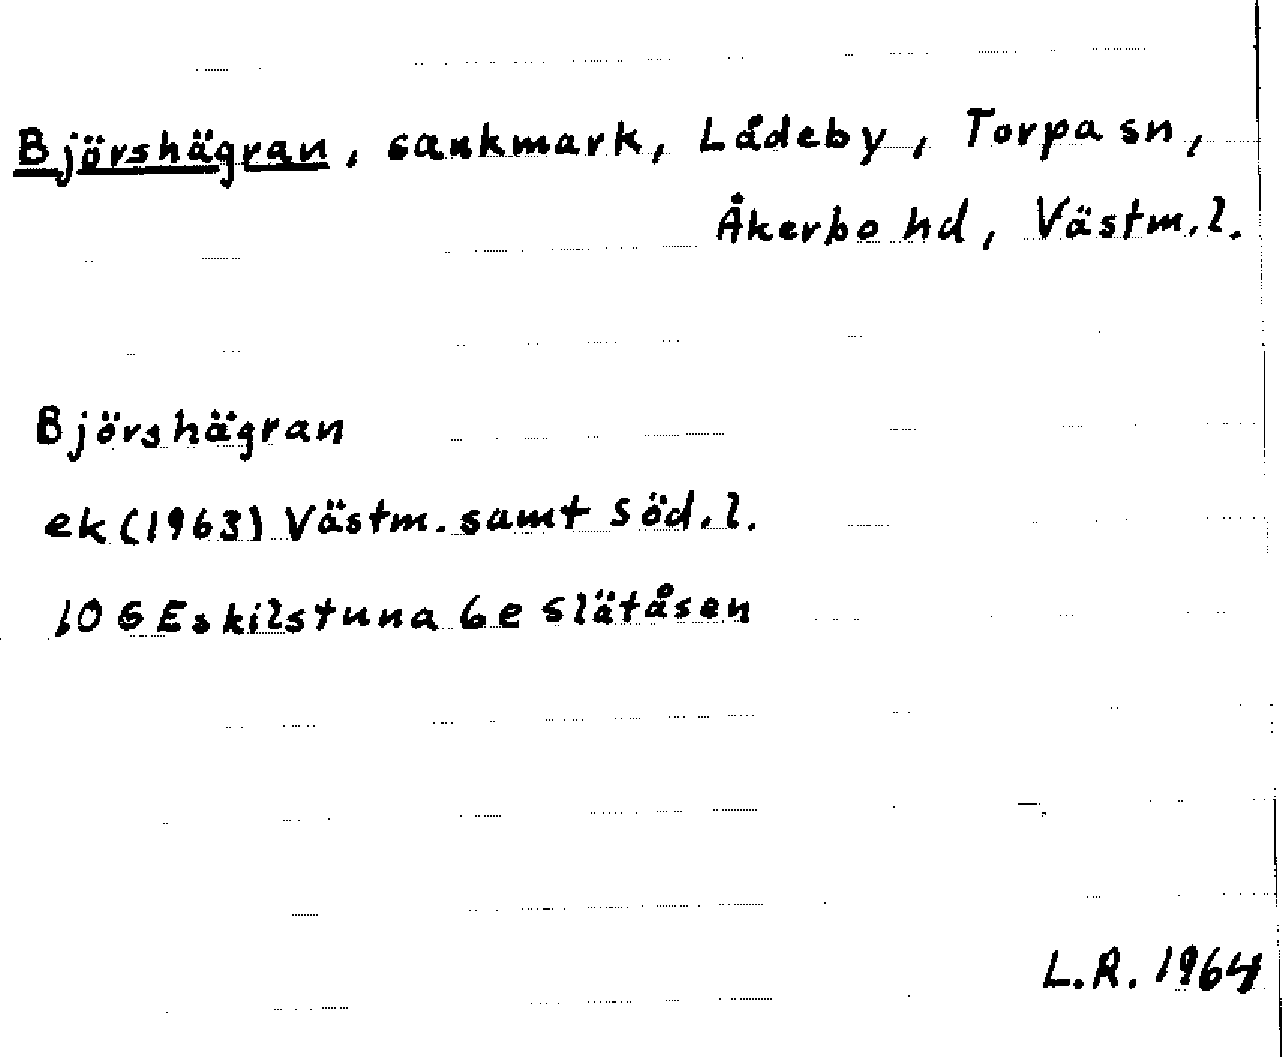 Björshägran, sankmark, Lådeby, Torpa sn,
Åkerbo hd, Västm.l.
Björshägran
ek (1963) Västm. samt Söd.l.
10 G Eskilstuna 6e Slätåsen
L.R. 1964